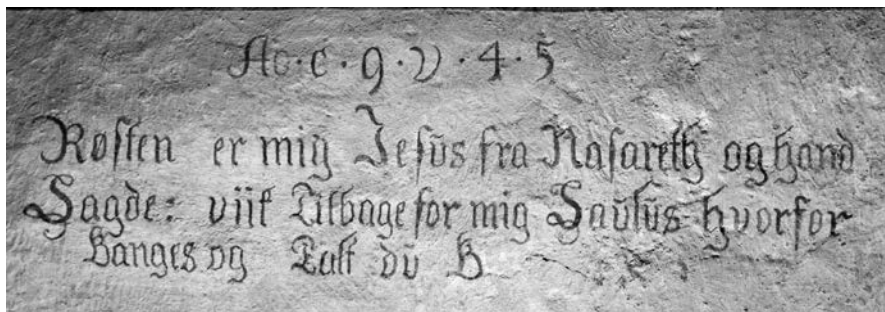 Ac · C · 9 · V · 4 · 5
Røsten er mig Jesus fra Nasareth og hand
Sagde: viik Tilbage for mig Saulus hvorfor
Banges og Talt du B